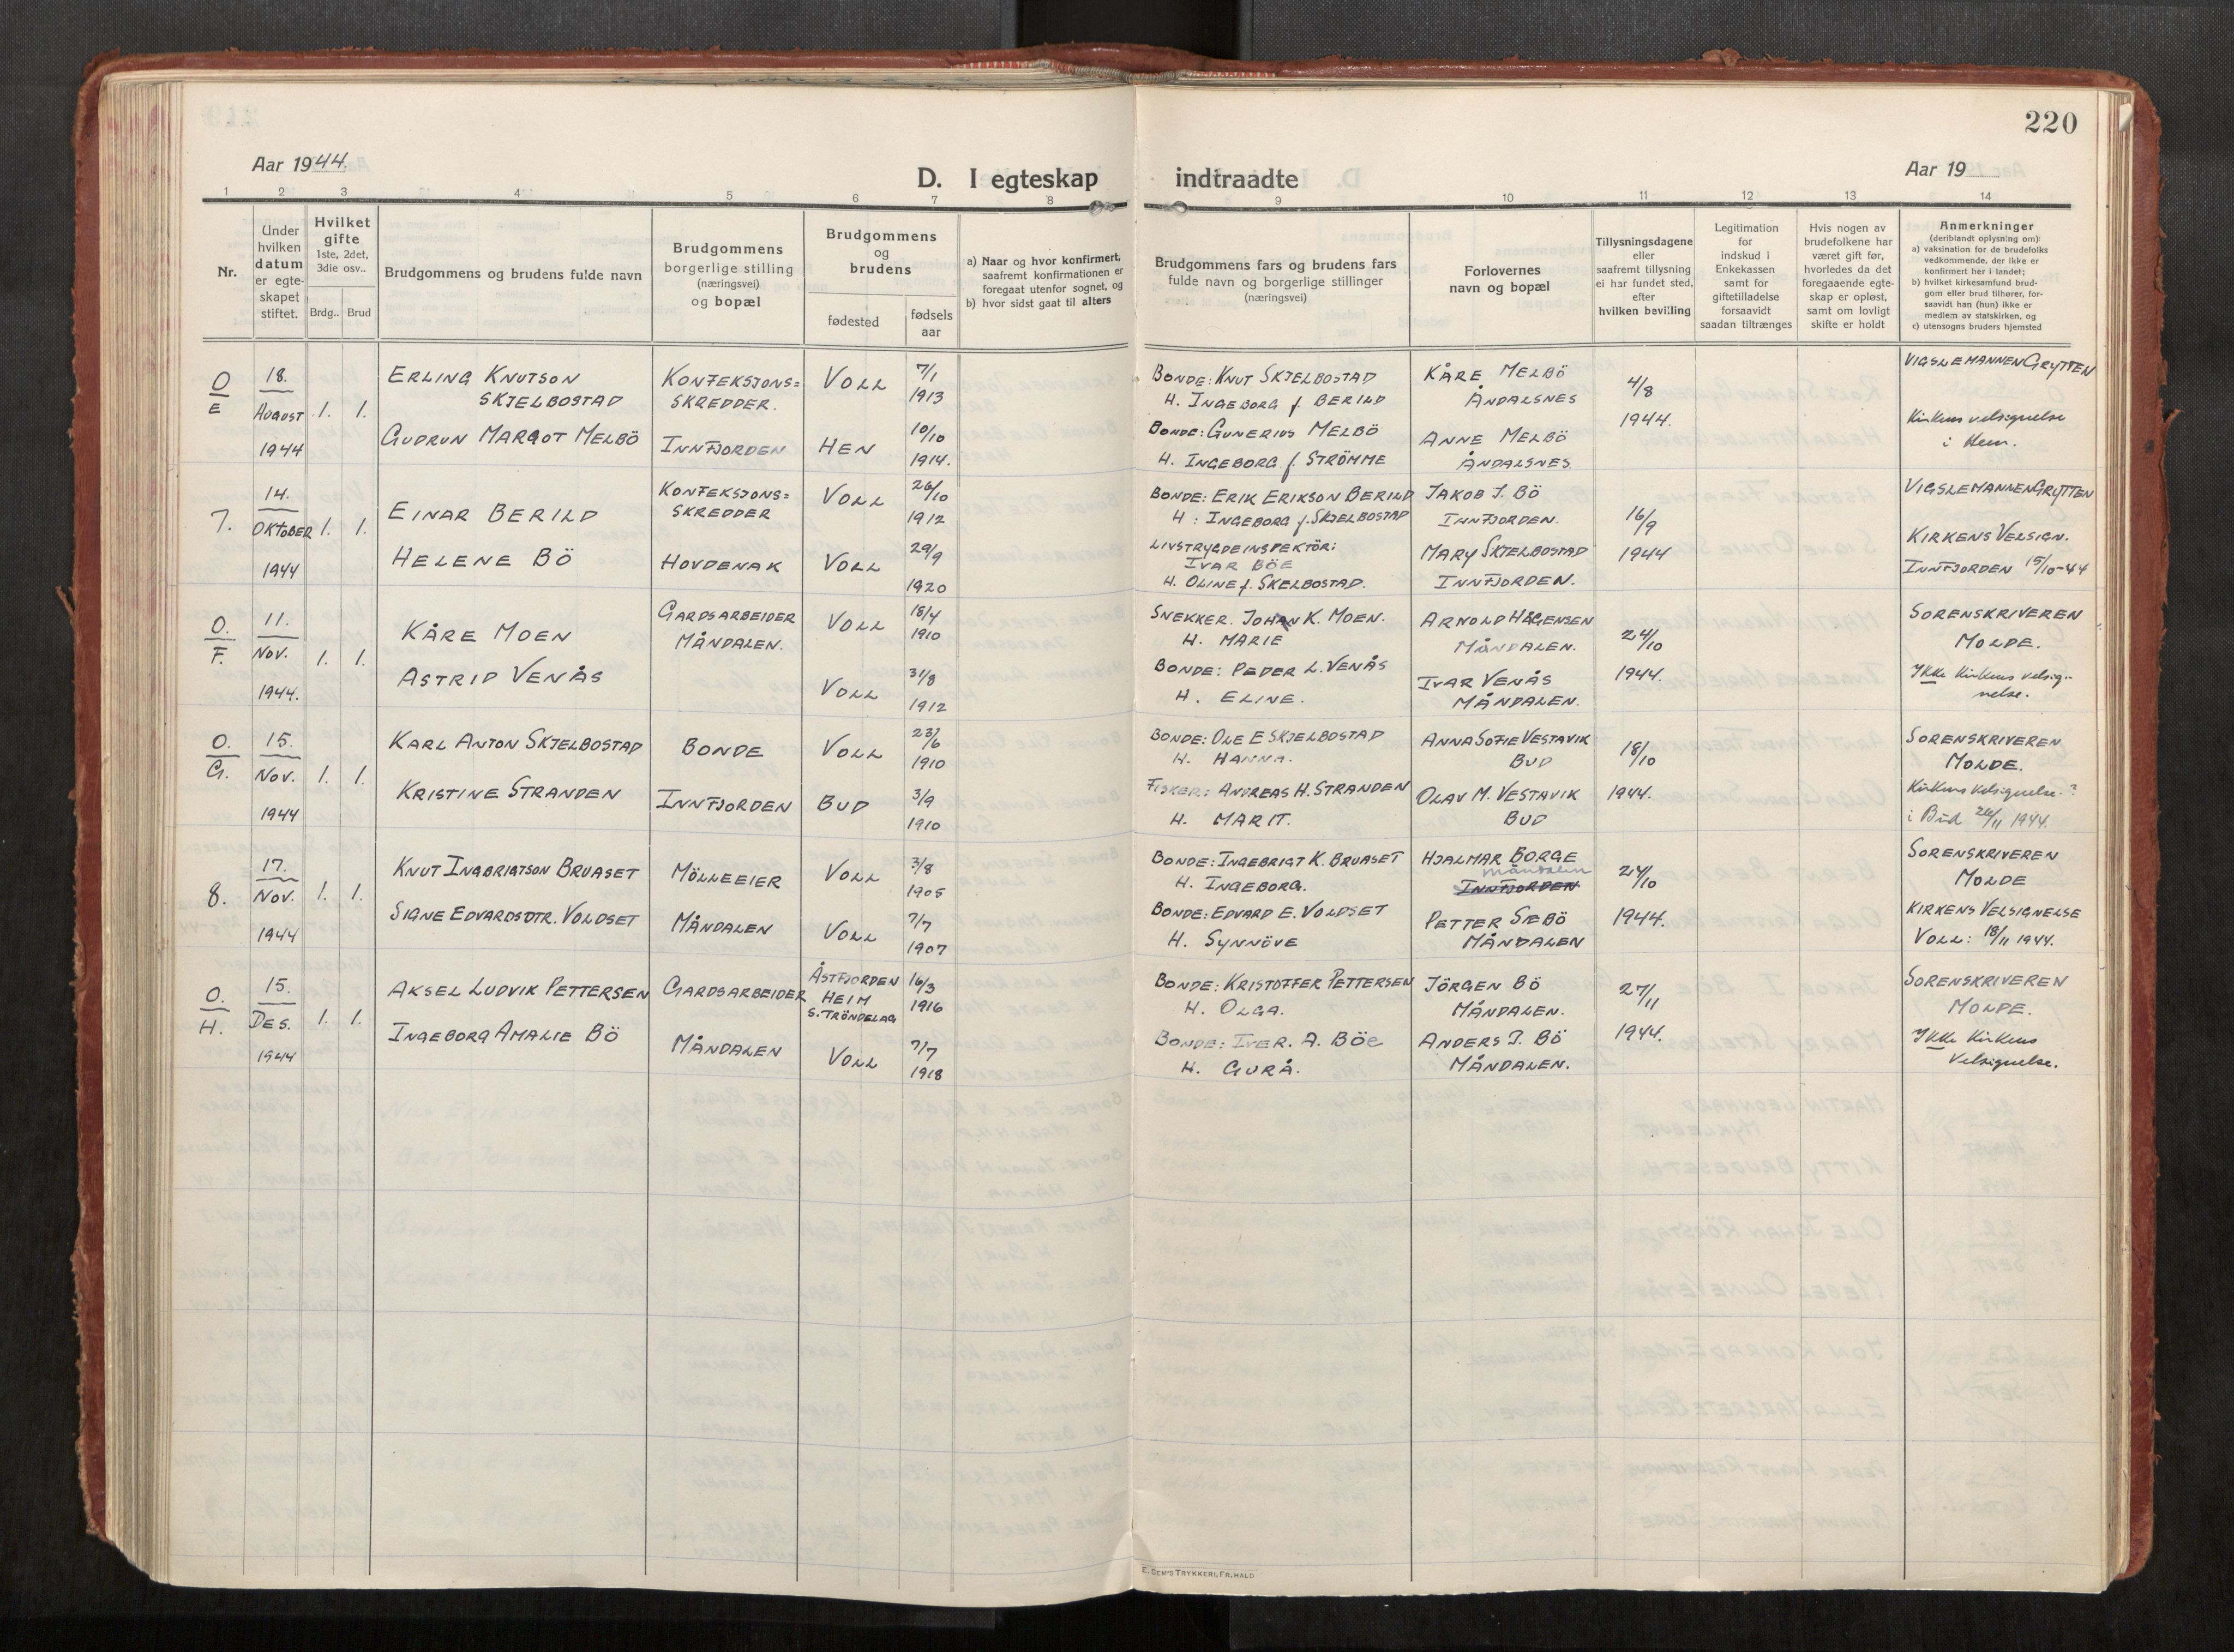 220
Aar 1944.
D. I egteskap indtraadte
Aar 19
1 2 3 4 5 6 7 8 9 10 11 12 13 14
Nr.
Under
hvilken
datum
er egte-
skapet
stiftet.
Hvilket
gifte
1ste, 2det,
3die osv..
Brdg.. Brud
Brudgommens og brudens fulde navn
Brudgommens
borgerlige stilling
(næringsvei)
og bopæl
Brudgommens
og
brudens
fødested
fødsels
aar
a) Naar og hvor konfirmert,
saafremt konfirmationen er
foregaat utenfor sognet, og
b) hvor sidst gaat til alters
Brudgommens fars og brudens fars
fulde navn og borgerlige stillinger
(næringsvei)
Forlovernes
navn og bopæl
Tillysningsdagene
eller
saafremt tillysning
ei har fundet sted,
efter
hvilken bevilling
Legitimation
for
indskud i
Enkekassen
samt for
giftetilladelse
forsaavidt
saadan tiltrænges
Hvis nogen av
brudefolkene har
været gift før,
hvorledes da det
foregaaende egte-
skap er opløst,
samt om lovligt
skifte er holdt
Anmerkninger
(deriblandt oplysning om):
a) vaksination for de brudefolks
vedkommende, der ikke er
konfirmert her i landet;
b) hvilket kirkesamfund brud-
gom eller brud tilhører, for-
saavidt han (hun) ikke er
medlem av statskirken, og
c) utensogns bruders hjemsted
O
E
18.
August
1944
1. 1.
Erling Knutson
Skjelbostad
Gudrun Margot Melbö
Konfeksjons=
skredder.
Innfjorden
Voll
Hen
7/1
1913
10/10
1914.
Bonde: Knut Skjelbostad
H. Ingeborg f. Berild
Bonde: Gunerius Melbö
H. Ingeborg f. Strömme
Kåre Melbö
Åndalsnes
Anne Melbö
Åndalsnes
4/8
1944.
Vigslemannen Grytten
Kirkens velsignelse
i Hen.
7.
14.
Oktober
1944
1. 1.
Einar Berild
Helene Bö
Konfeksjons=
skredder
Hovdenak
Voll
Voll
26/10
1912
29/9
1920
Bonde: Erik Erikson Berild
H: Ingeborg f. Skjelbostad
Livstrygdeinspektör:
Ivar Böe
H. Oline f. Skelbostad.
Jakob J. Bö
Innfjorden.
Mary Skjelbostad
Innfjorden.
16/9
1944
Vigslemannen Grytten
Kirkens Velsign.
Innfjorden 15/10-44
O.
F.
11.
Nov.
1944.
1. 1.
Kåre Moen
Astrid Venås
Gardsarbeider
Måndalen.
Voll
Voll
18/4
1910
31/8
1912
Snekker. Johan K. Moen.
H. Marie
Bonde: Peder L. Venås
H. Eline.
Arnold Hågensen
Måndalen.
Ivar Venås
Måndalen.
24/10
1944.
Sorenskriveren
Molde.
Ikke Kirkens velsig-
nelse.
O.
G.
15.
Nov.
1944
1. 1.
Karl Anton Skjelbostad
Kristine Stranden
Bonde
Innfjorden
Voll
Bud
23/6
1910
3/9
1910
Bonde: Ole E Skjelbostad
H. Hanna.
Fisker: Andreas H. Stranden
H. Marit.
Anna Sofie Vestavik
Bud
Olav M. Vestavik
Bud
18/10
1944.
Sorenskriveren
Molde.
Kirkens Velsignelse.?
i Bud 26/11 1944.
8.
17.
Nov.
1944
1. 1.
Knut Ingbrigtson Bruaset
Signe Edvardsdtr. Voldset
Mölleeier
Måndalen
Voll
Voll
3/8
1905
7/7
1907
Bonde: Ingebrigt K. Bruaset
H. Ingeborg.
Bonde: Edvard E. Voldset
H. Synnöve
Hjalmar Borge
Måndalen
Innfjorden
Petter Sæbö
Måndalen
24/10
1944.
Sorenskriveren
Molde
Kirkens Velsignelse
Voll: 18/11 1944.
O.
H.
15.
Des.
1944
1. 1.
Aksel Ludvik Pettersen
Ingeborg Amalie Bö
Gardsarbeider
Måndalen
Åstfjorden
Heim
S. Tröndelag
Voll
16/3
1916
7/7
1918
Bonde: Kristoffer Pettersen
H. Olga.
Bonde: Iver. A. Böe
H. Gurå.
Jörgen Bö
Måndalen.
Anders J. Bö
Måndalen.
27/11
1944.
Sorenskriveren
Molde.
Ikke Kirkens
Velsignelse.
E. Sem's Trykkeri, Fr.hald